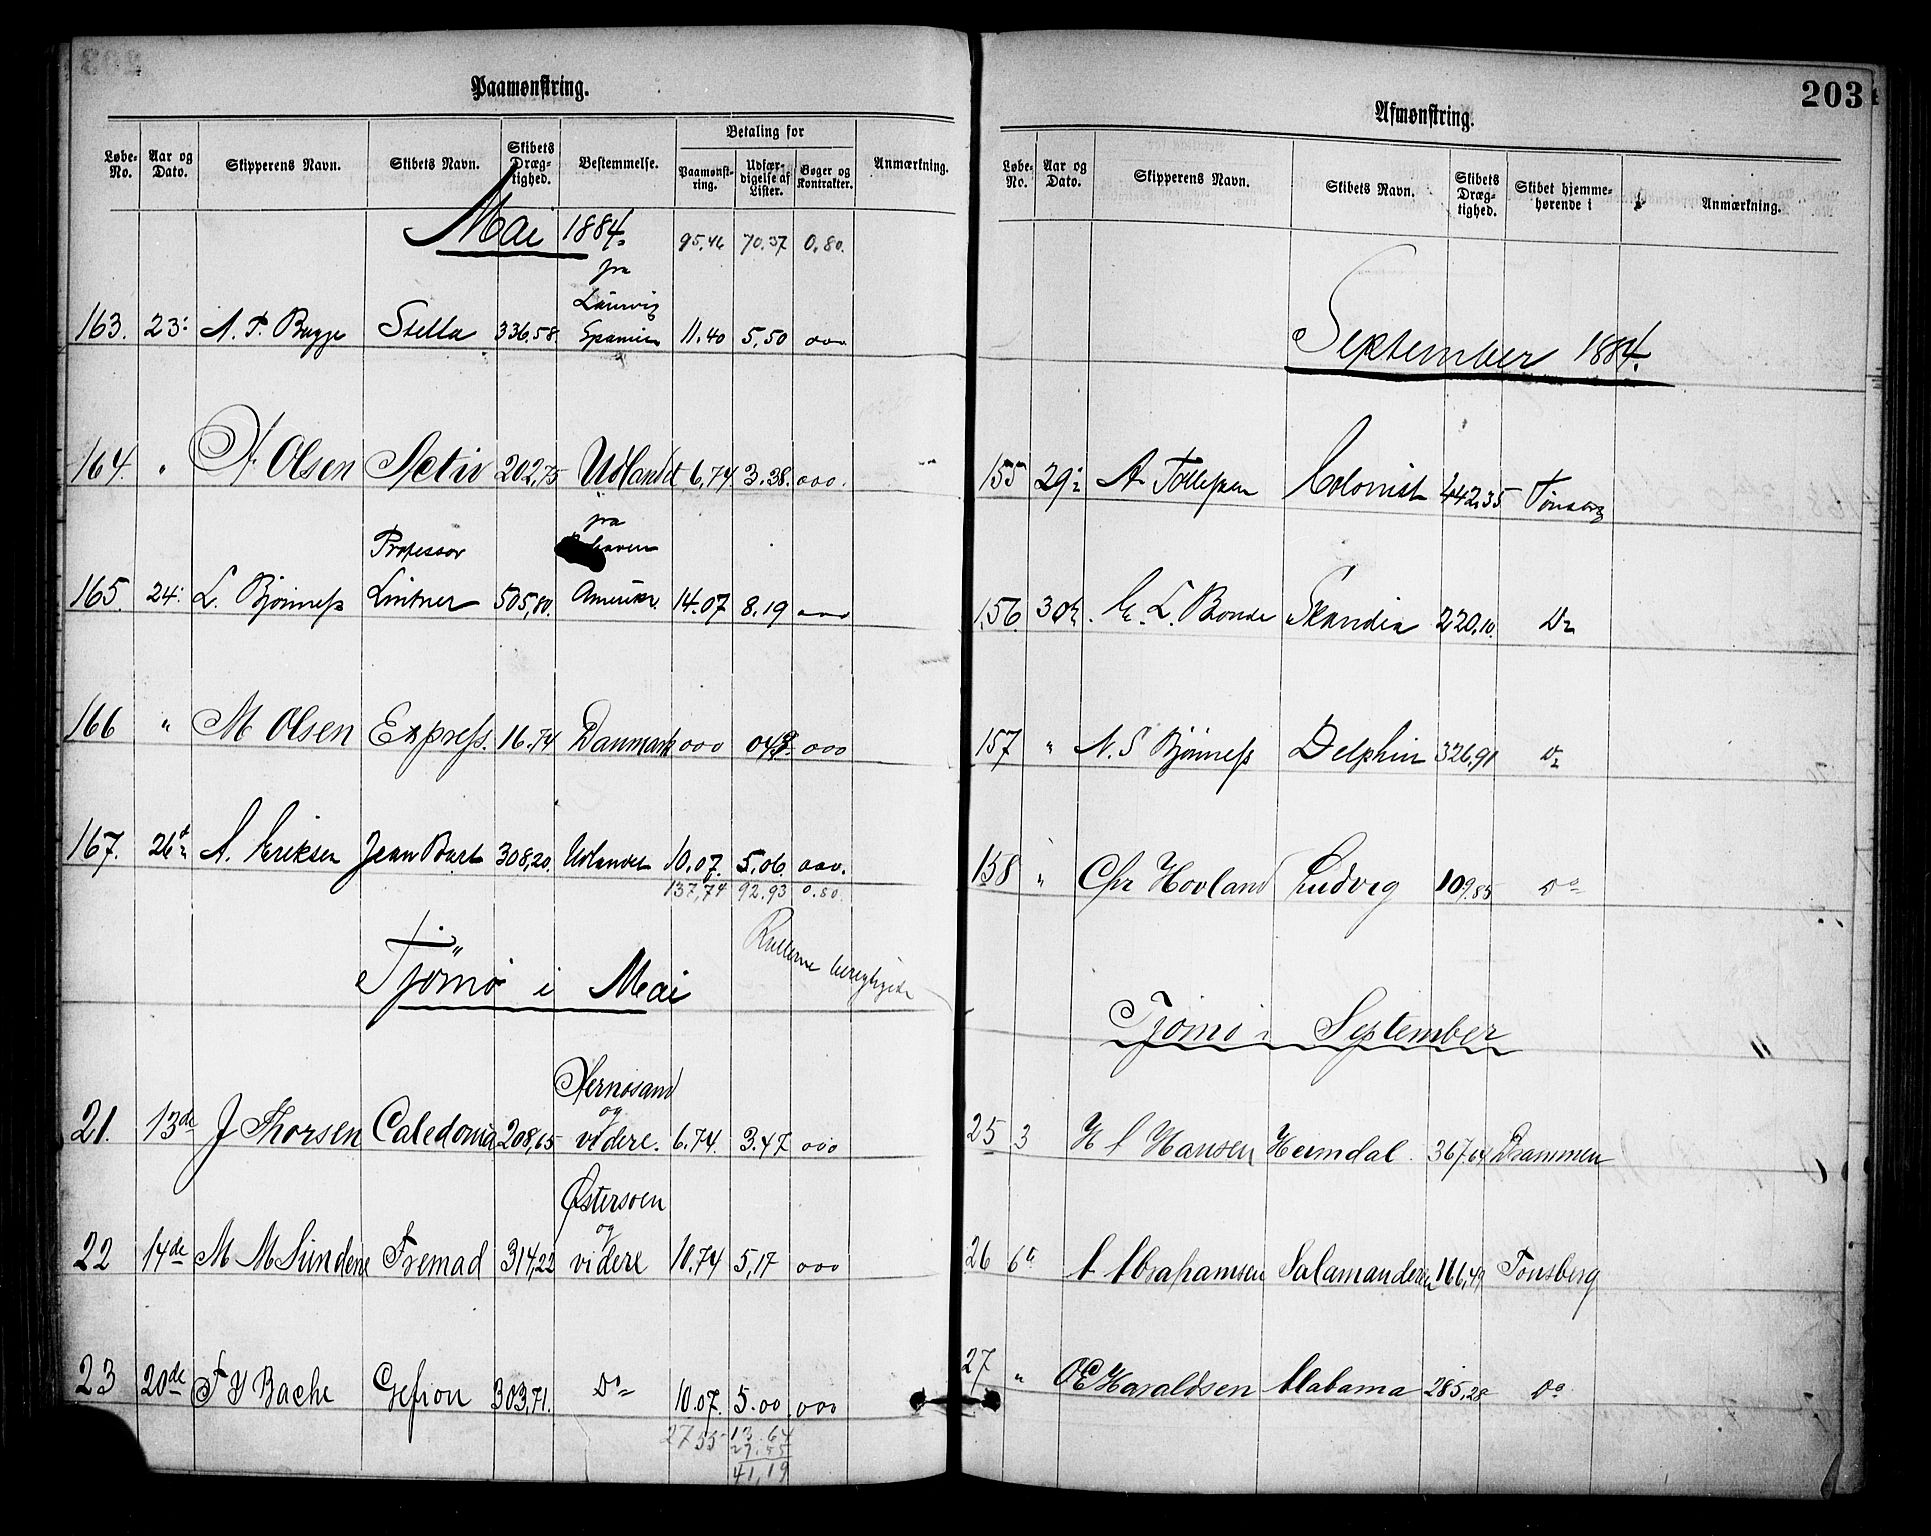 Paamønstring.
Løbe-No. Aar og Dato. Skipperens Navn. Skibets Navn. Skibets Dræg-tighed. Bestemmelse. Betaling for Paamønst-ring. Udfær-digelse af Lister. Bøger og Kontrakter. Anmærkning.
Mai 1884. 95,46 70.37 0.80.
fra
Laurvig
163. 23: A. P. Bugge Stella 336.58. Spanien 11.40 5,50 ooo
164. " A. Olsen Activ 202,75 Udlandet 6,74 3.38. ooo.
Professor fra
165. 24: L. Bjønness Lintner 505,80. Amerika. 14.07 8.19 ooo
166 " M Olsen Express. 16.74 Danmark ooo ooo
167. 26d A. Eriksen Jean Bart 308,20. Udlandet 10.07. 5,06 ooo.
137,74 92.93 0.80.
Tjømø i Mai
Rullerne
Hernøsand
og
21. 13de J Thorsen Caledonia 208,65 videre. 6.74. 3.47 ooo
Østersøen
og
22 14de M M Sundene Fremad 314,22 videre 10.74 5,17 ooo
23 20de F Y Bache Gefion 303,71. Do 10.07. 5.00. ooo
27 55 13.64
27.55
41,19
203
Afmønstring.
Løbe-No. Aar og Dato. Skipperens Navn. Skibets Navn. Skibets Dræg-tighed. Skibet hjemme-hørende i Anmærkning.
September 1884.
155 29: A. Tollefsen Colonist 442.35 Tønsberg
156. 30te. C. L. Bonde Skandia 220.10. Do
157 " N. S Bjønness Delphin 326,91 Do
158 " Chr Hovland Ludvig 109.85 Do
Tjømø i September
25 3 H C Hansen Heimdal. 367.64 Drammen
26 6te A Abrahamsen Salamanderen 166,49 Tønsberg
27 " O E Haraldsen Alabama 285,28 Do